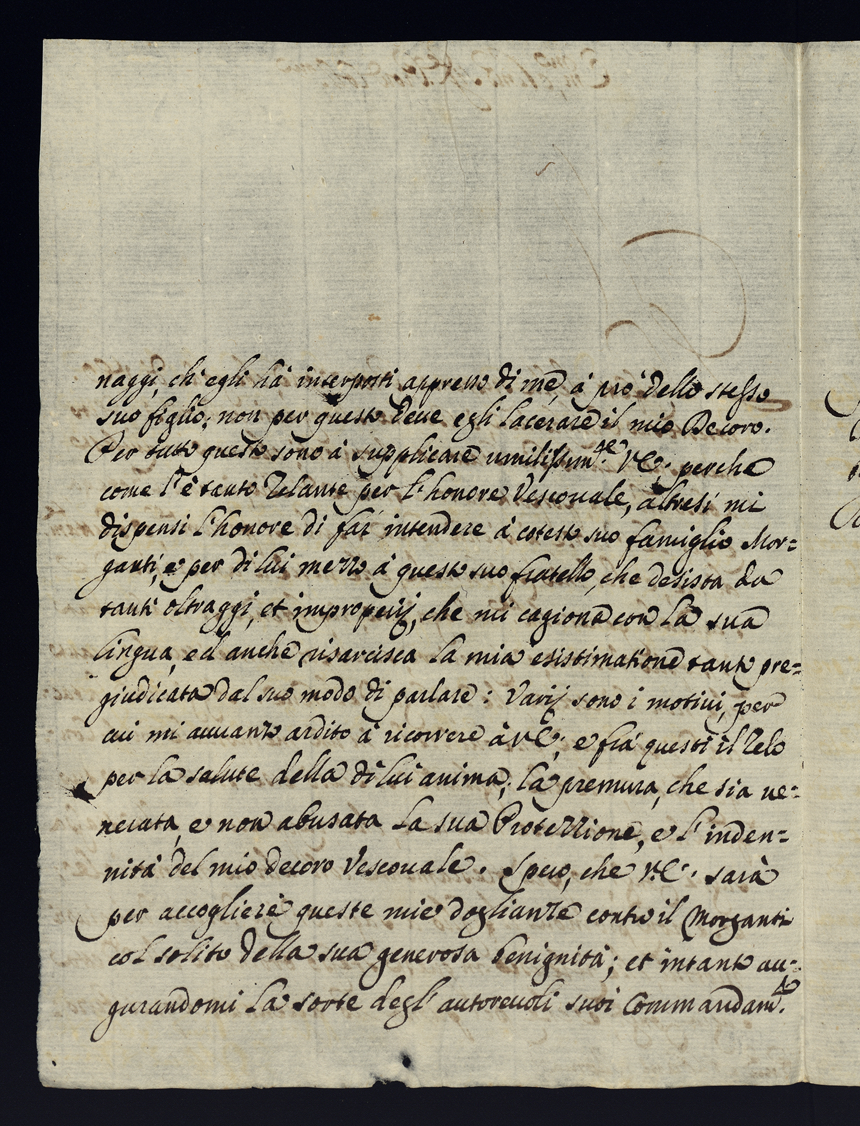 naggi, ch'egli hà interposti appresso di me, à prò dello stesso
suo figlio; non per questo deue egli lacerare il mio Decoro.
Per tutto questo sono à supplicare umilissim.te V.E. perche
come l'è tanto zelante per l'honore Vescouale, altresi mi
dispensi l'honore di far intendere à cotesto suo famiglio Mor=
ganti, e per di lui mezzo à questo suo fratello, che desista da
tanti oltraggi, et improperij, che mi cagiona con la sua
lingua, ed anche risarcisca la mia esistimatione tanto pre=
giudicata dal suo modo di parlare: Varij sono i motiui, per
cui mi auuanzo ardito à ricorrere à V.E.; e frà questi il zelo
per la salute della di lui anima; la premura, che sia ue=
nerata, e non abusata la sua Protezzione, e l'inden=
nità del mio decoro Vescouale. Spero, che V.E. sarà
per accogliere queste mie doglianze contro il Morganti
col solito della sua generosa benignità; et intanto au=
gurandomi la sorte degl'autoreuoli suoi Commandam.ti